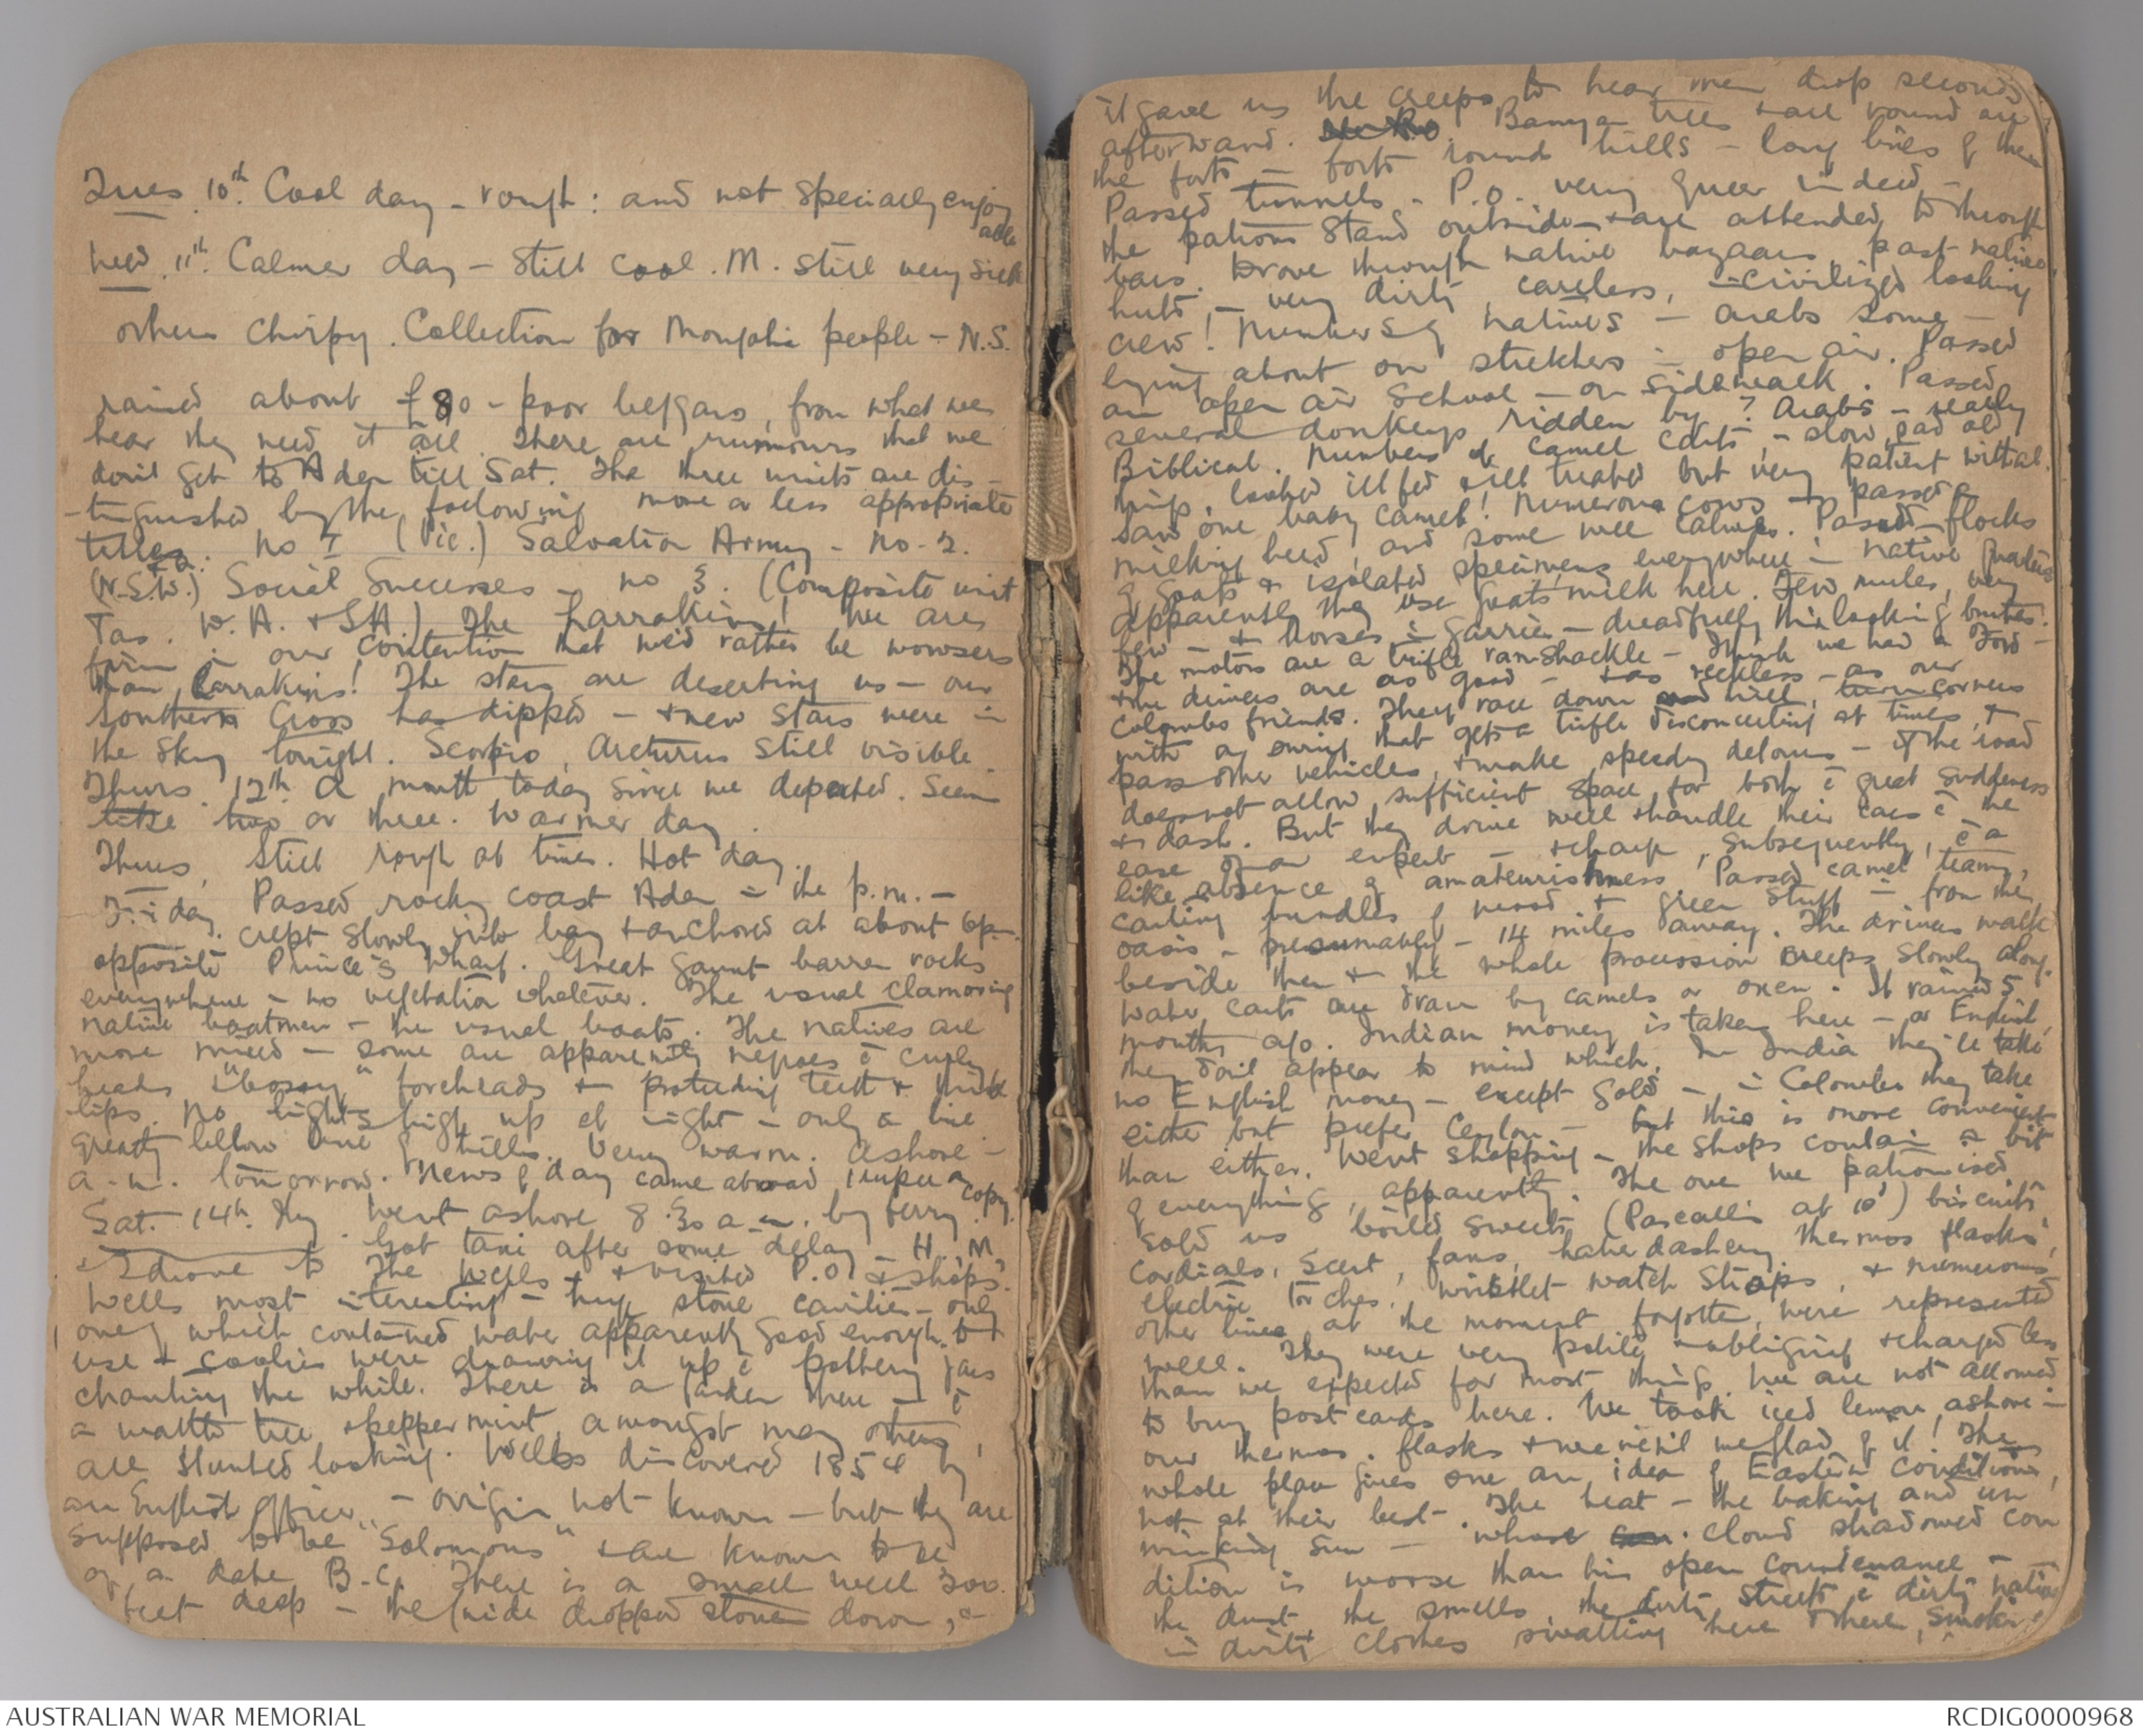 Tues. 10th. Cool day - rough: and not specially enjoy
able
Wed. 11th. Calmer day - still cool. M. still very sick
others chirpy. Collection for Mongolia people - N.S.
raised about £80 - poor beggars, from what we
hear they need it all. There are rumours that we
don't get to Aden till Sat. The three units are dis-
-tinguished by the following more or less appropriate
titles: No 1 (Vic.) Salvation Army - No. 2.
(N.S.W.) Social Successes - no 3. (Composite unit
Tas. W.A. + SA) The Larrakins! We are
firm in our contention that we'd rather be wowsers
than Larrakins! The stars are deserting us - our
Southern Cross has dipped - + new stars were in
the sky tonight. Scorpio, Arcturus still visible.
Thurs. 12th. A month today since we departed. Seems
like two or three. Warmer day.
Thurs. Still rough at times. Hot day.
Friday. Passed rocky coast Aden in the p.m. -
crept slowly into bay + anchored at about 6p.
opposite Prince's Wharf. Great gaunt barren rocks
everywhere - no vegetation whatever. The usual clamoring
native boatmen - the usual boats. The natives are
more mixed - some are apparently negroes c curly
heads "bossy" foreheads + protruding teeth + thick
lips. No lights high up at night - only a line
greatly below line of hills. Very warm. Ashore -
a.m. tomorrow. News of day came aboard copy.
Sat. 14th. Went ashore 8.30 a.m. by ferry.
Got taxi after some delay - H., M.,
+ I drove to The Wells + visited P.O. + shops.
Wells most interesting - huge stone cavities - only
one of which contained water apparently good enough to
use + coolies were drawing it up c pottery jars
chanting the while. There is a garden there - c
a wattle tree + peppermint amongst many others,
all stunted looking. Wells discovered 1854 by
an English officer - origin not known - but they are
supposed to be "Solomons" + are known to be
of a date B.C. There is a small well 300.
feet deep - the guide dropped stones down, +
it gave us the creeps to hear them drop seconds
afterward. Banyan trees + all round are
the forts - forts round hills - long lines of them
Passed tunnels - P.O. very queer indeed -
the patrons stand outside + are attended to through
bars. Drove through native bazaars, past native
huts, - very dirty, careless, uncivilized looking
crew! Numbers of natives - arabs some -
lying about on stretchers in open air. Passed
an open air School - on sidewalk. Passed
several donkeys ridden by ? Arabs - really
Biblical. Numbers of camel carts, - slow, sad old
things, looked ill fed + ill treated but very patient withal.
Saw one baby camel! Numerous cows - passed a
milking herd, and some wee calves. Passed flocks
of goats + isolated specimens everywhere in native quarters
Apparently they use goats milk here. Few mules, very
few - + horses in garries - dreadfully thin looking brutes.
The motors are a trifle ramshackle - think we had a Ford -
+ the drivers are as good - + as reckless - as our
Colombo friends. They race down hill, turn corners
with a swing that gets a trifle disconcerting at times, +
pass other vehicles, + make speedy detours - if the road
does not allow sufficient space for both c great suddeness
+ dash. But they drive well + handle their cars c the
ease of an expert - + charge, subsequently, c a
like absence of amateurishness. Passed camel teams,
carting bundles of wood + green stuff - from the
oasis - presumably - 14 miles away. The drivers walk
beside them + the whole procession creeps slowly along.
Water carts are drawn by camels or oxen. It rained 5
months ago. Indian money is taken here - or English,
they don't appear to mind which. In India they'll take
no English money - except gold - in Colombo they take
either but prefer Ceylon - but this is more convenient
than either. Went shopping - the shops contain a bit
of everything, apparently. The one we patronised
sold us boiled sweets (Pascall's at 10') biscuits
cordials, scent, fans, haberdashery, thermos flasks,
electric torches, wristlet watch straps, + numerous
other lines at the moment forgotten, were represented
well. They were very polite + obliging + charged less
than we expected for most things. We are not allowed
to buy postcards here. We took iced lemon, ashore in
our thermos flasks + weren't we glad of it! The
whole place gives one an idea of Eastern conditions,
not at their best. The heat - the baking and un
winking sun - whose cloud shadowed con
dition is worse than his open countenance -
the dust, the smells, the dirty streets c dirty natives
in dirty clothes squatting here + there, smoking
AUSTRALIAN WAR MEMORIAL
RCDIG0000968